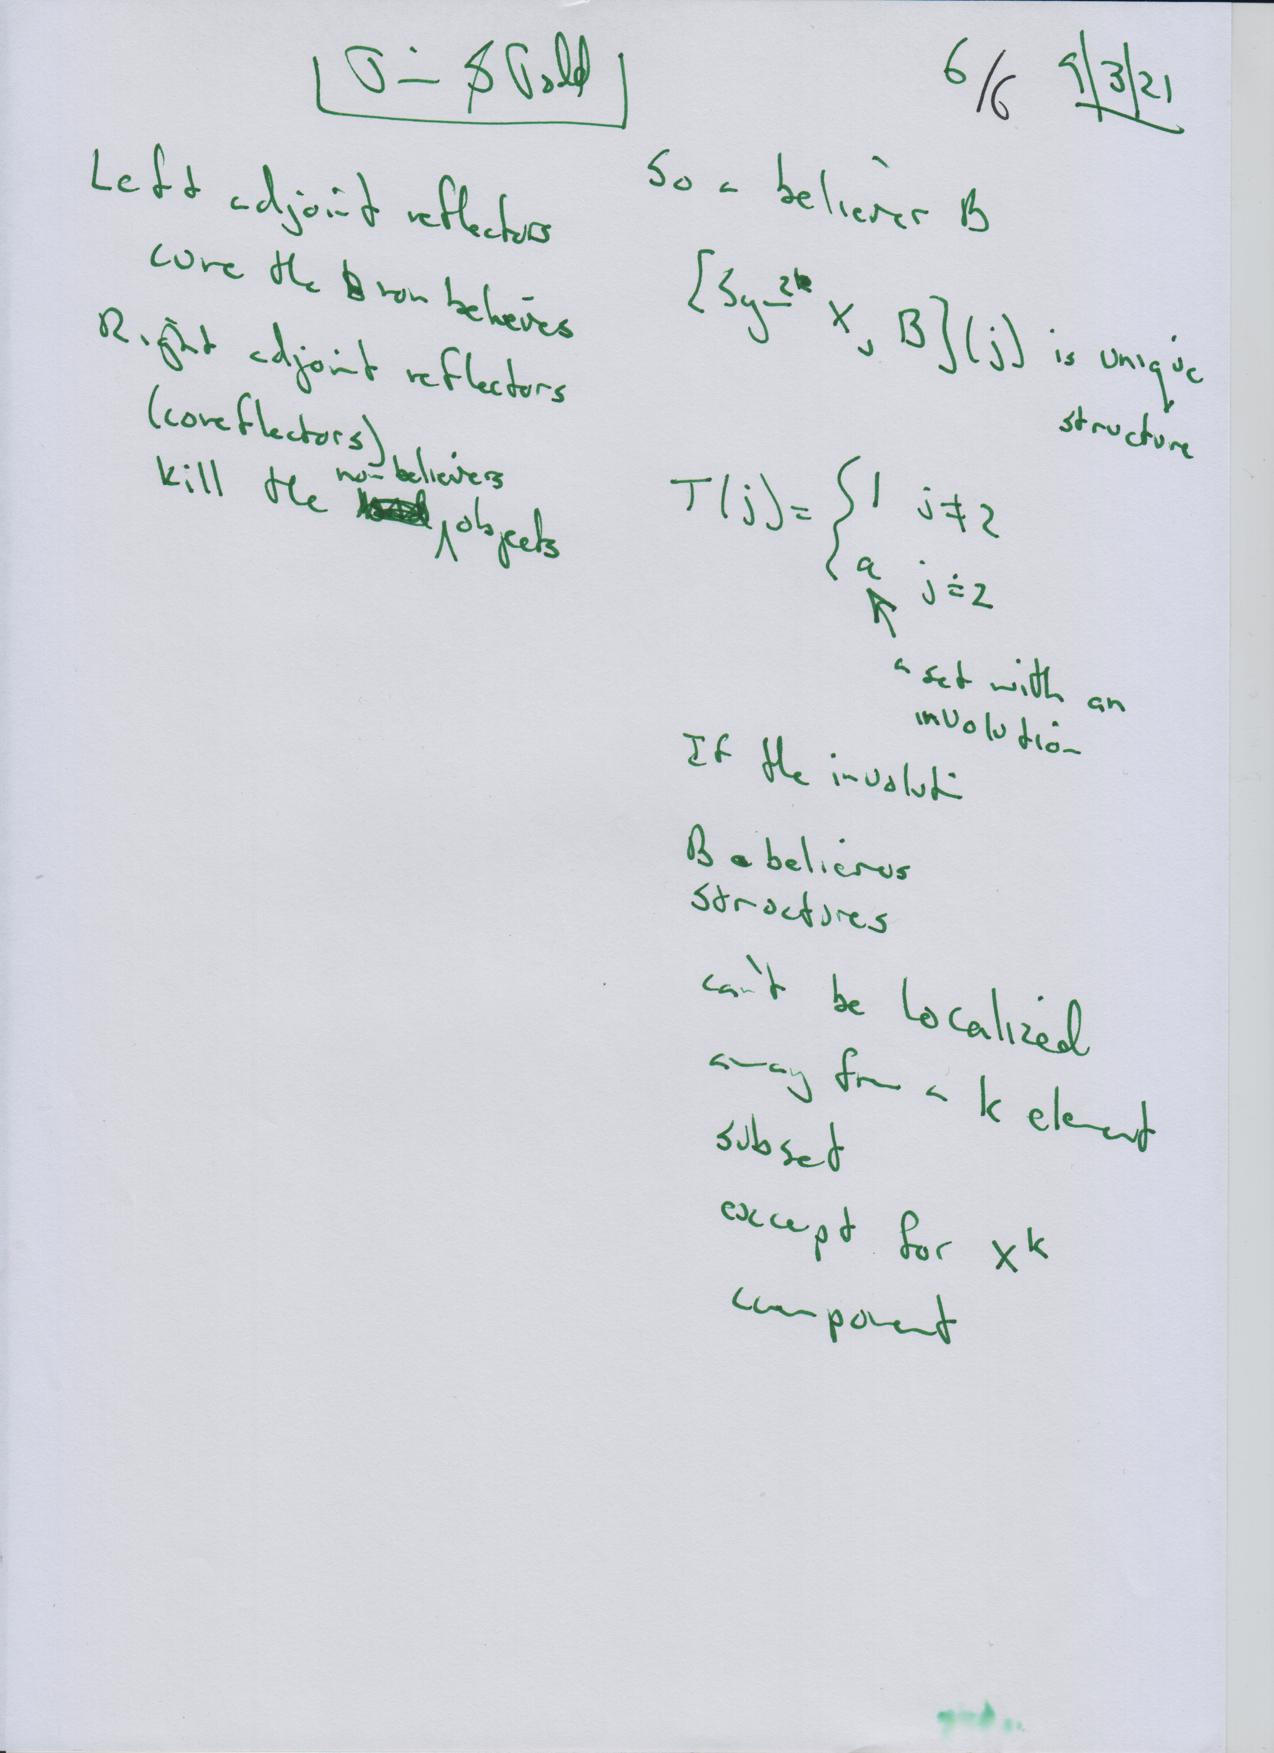 6/6 9/3/21
Left adjoint reflectors
cure the non believers
Right adjoint reflectors
(coreflectors)
kill the non believers objects
So a believer B
[Sym²ᵏ X, B](j) is unique
structure
T(j) = { 1 j≠2
a j=2
a set with an
involution
If the involuti
B believers
structures
can't be localized
away from a k element
subset
except for Xᵏ
component